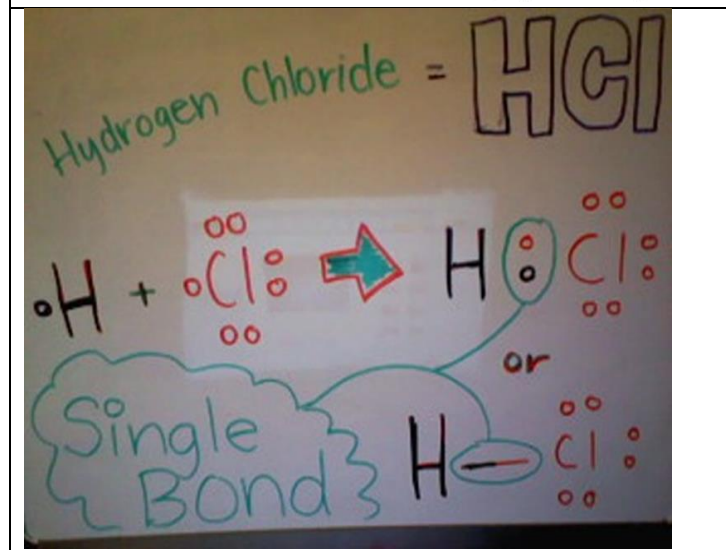 Hydrogen Chloride = HCl
H + Cl H Cl
or
Single H — Cl
Bond